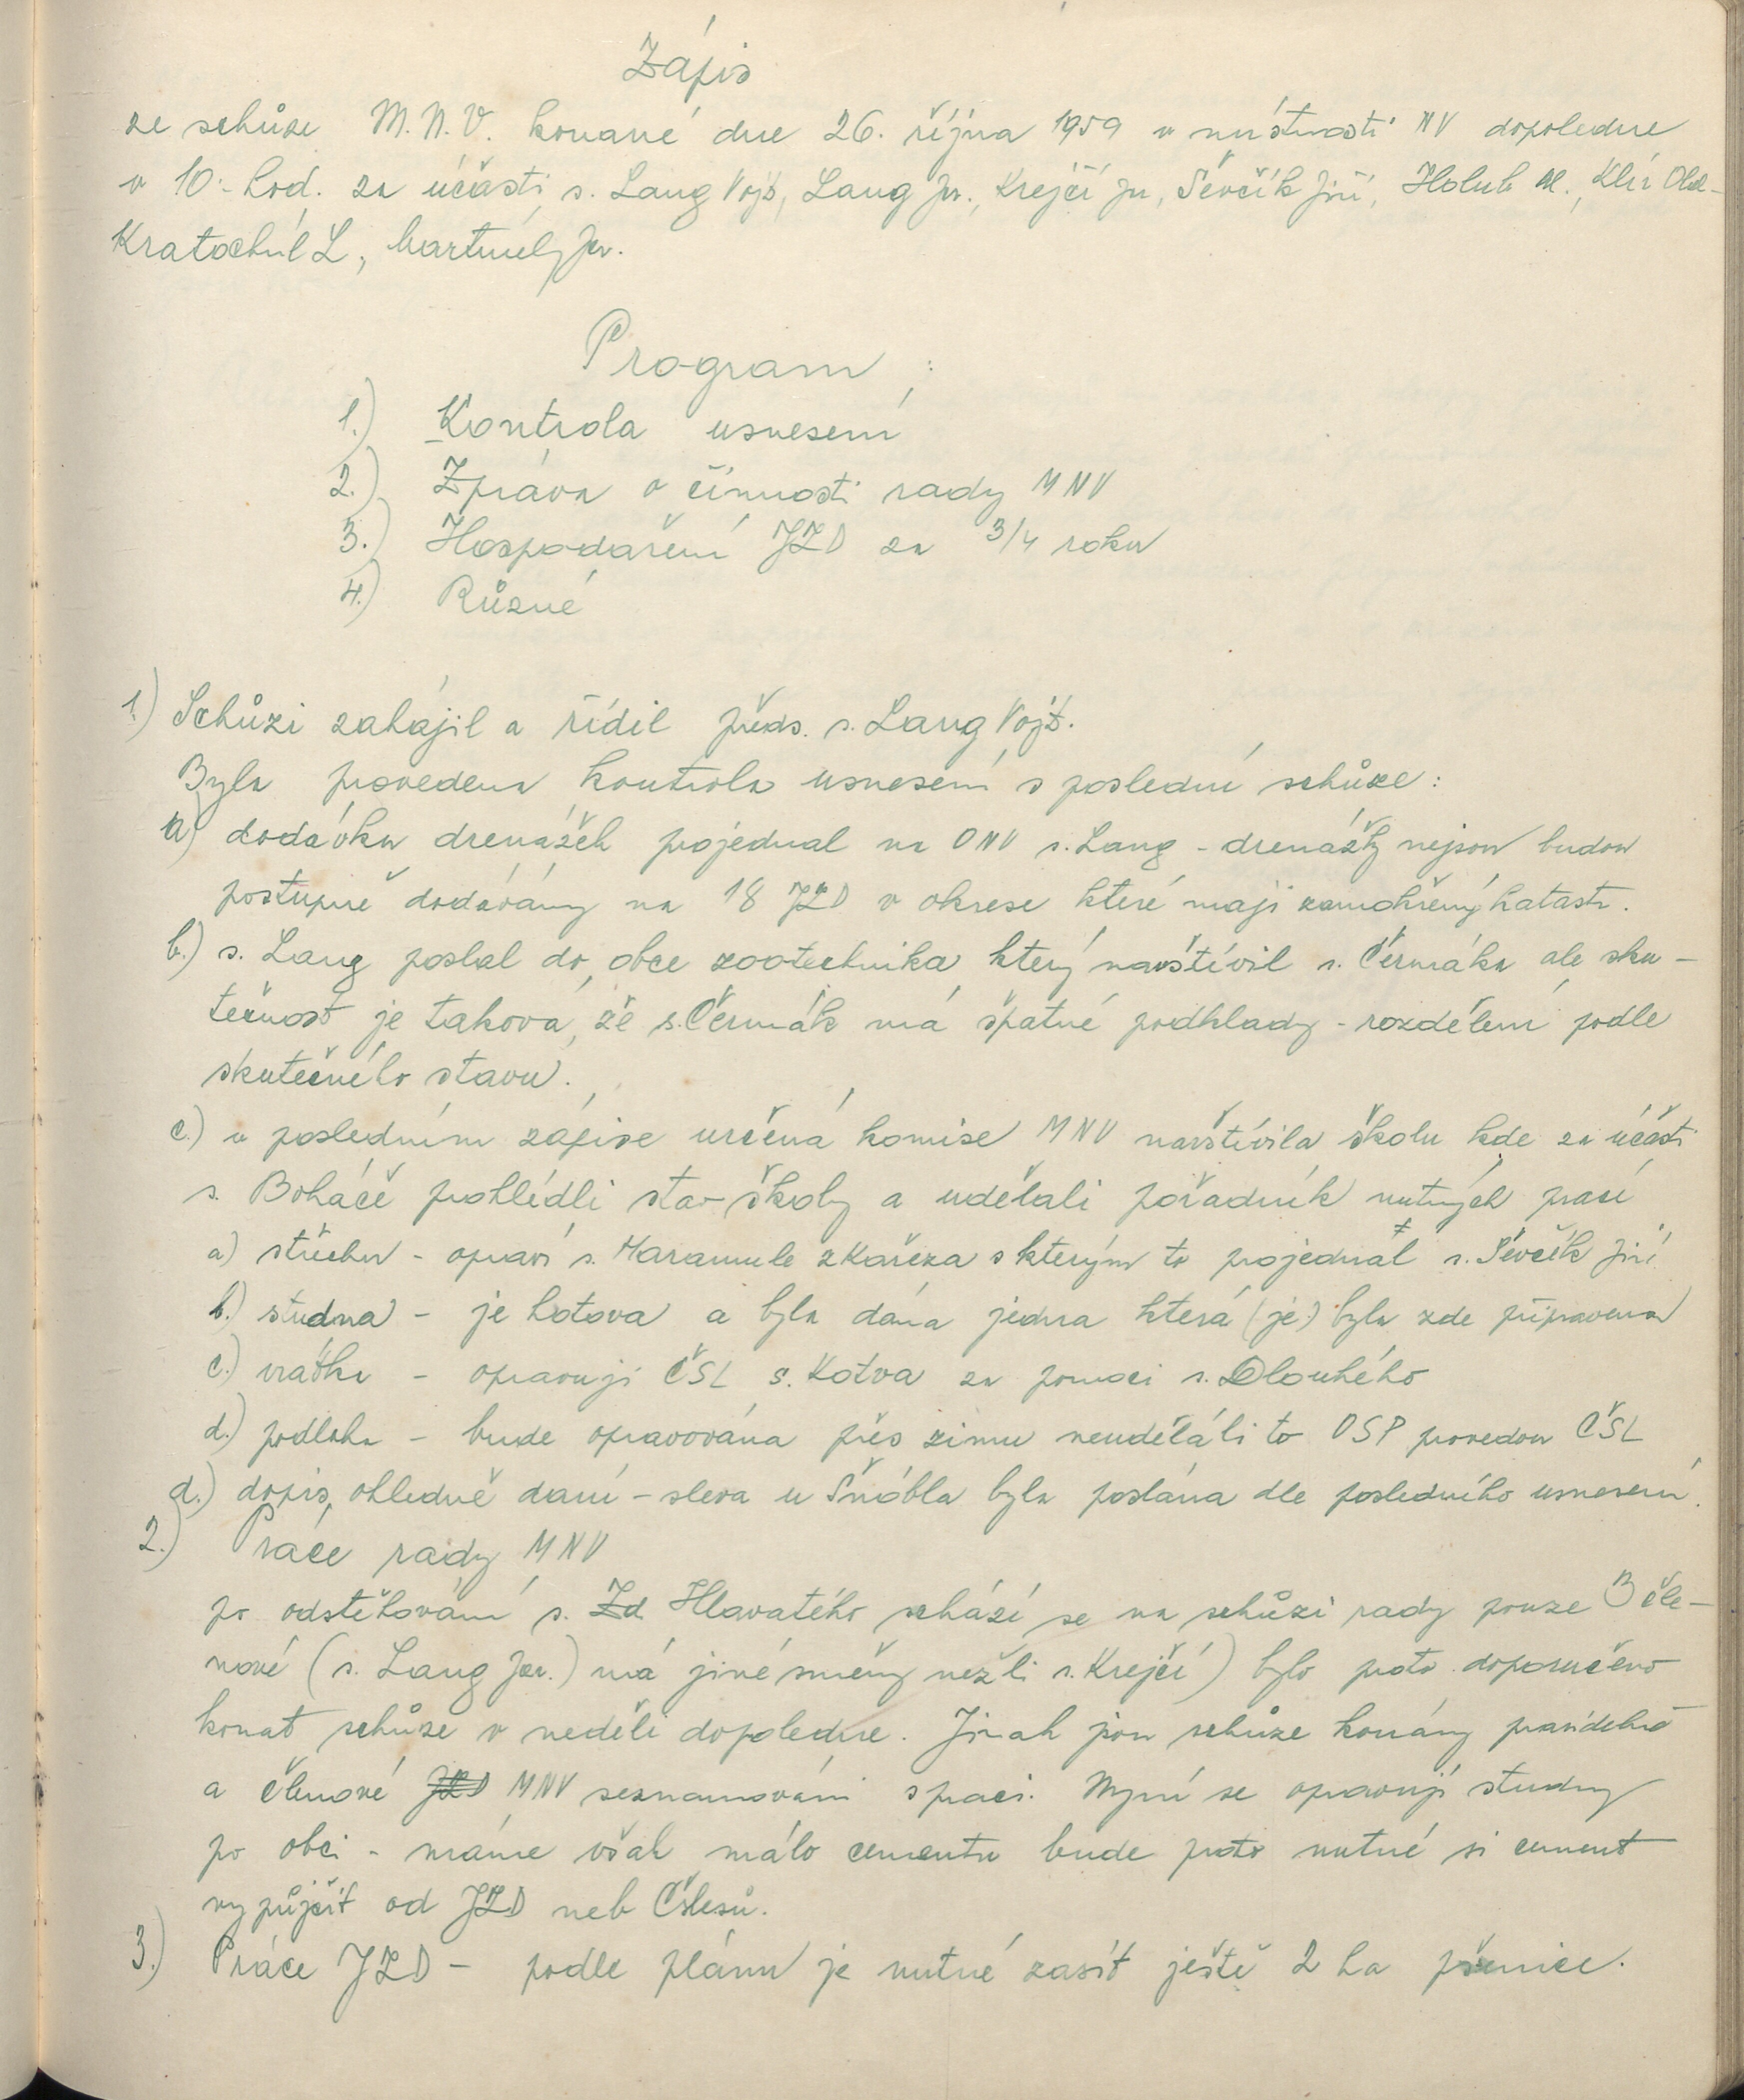 Zápis
ze schůze M.N.V. konané dne 26. října 1959 v místnosti NV dopoledne
v 10.- hod. za účasti s. Lang Vojt, Lang Jar., Krejčí Jn, Ševčík Jiří, Holub Al., Klír Old-
Kratochvíl L,
Program:
1.) Kontrola usnesení
2.) Zpráva o činnosti rady MNV
3.) Hospodaření JZD za 3/4 roku
4.) Různé
1) Schůzi zahájil a řídil předs. s. Lang Vojt.
Byla provedena kontrola usnesení s poslední schůze:
a) dodávku drenážek projednal na ONV s. Lang - drenážky nejsou budou
postupně dodávány na 18 JZD v okrese které mají zamokřený katastr.
b.) s. Lang poslal do obce zootechnika který navštívil s. Čermáka ale sku-
tečnost je taková, že s. Čermák má špatné podklady - rozdělení podle
skutečného stavu.
c.) v posledním zápise určená komise MNV navštívila školu kde za účasti
s. Boháče prohlédli stav školy a udělali pořadník nutných prací
a) střechu - opraví s. z Kařeza s kterým to projednal s. Ševčík Jiří
b.) studna - je hotova a byla dána jedna která (je) byla zde připravena
c.) vrátka - opravují ČSL s. Kotva za pomoci s. Dlouhého
d.) podlaha - bude opravována přes zimu neudělali to OSP provedou ČSL
d.) dopis ohledně daní - sleva u Šnobla byla poslána dle posledního usnesení.
2.) Práce rady MNV
po odstěhování s. Zd Hlavatého schází se na schůzi rady pouze 3 čle-
nové (s. Lang Jar.) má jiné směny nežli s. Krejčí) bylo proto doporučeno
konat schůze v neděli dopoledne. Jinak jsou schůze konány pravidelně
a členové JZD MNV seznamováni s prací. Nyní se opravují studny
po obci - máme však málo cementu bude proto nutné si cement
vypůjčit od JZD neb Čslesů.
3.) Práce JZD - podle plánu je nutné zasít ještě 2 ha pšenice.